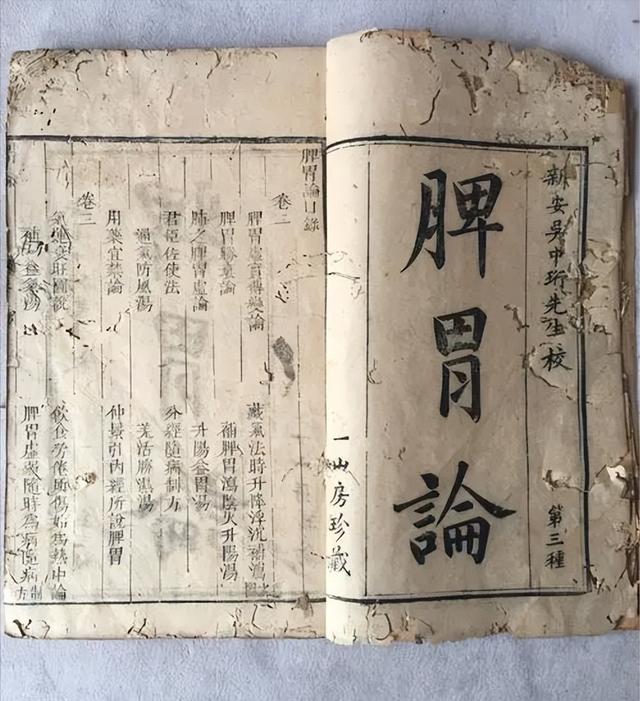 新安吳中珩先生校
第三種
脾胃論
一山房珍藏
脾胃論目錄
卷
脾胃虛實傳變論　藏氣法時升降浮沈補瀉圖
脾胃勝衰論　補脾胃瀉陰火升陽湯
肺之脾胃虛論　升陽益胃湯
君臣佐使法　分經隨病制方
通氣防風湯　羌活勝濕湯
用藥宜禁論　仲景引內經所說脾胃
卷
氣運衰旺圖說　飲食勞倦所傷始爲熱中論
益氣湯　脾胃虛弱隨時爲病隨病制